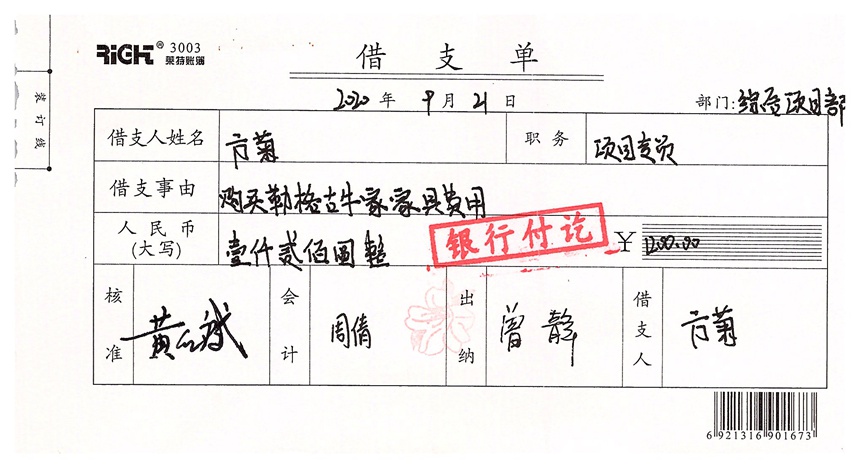 RiGHT® 3003
莱特账簿
借支单
2020年9月21日
部门:综合项目部
装订线
借支人姓名 方菊 职务 项目专员
借支事由 购买勒格吉牛家家具费用
人民币
(大写) 壹仟贰佰圆整 ¥1200.00
银行付讫
核准 会计 周倩 出纳 曾静 借支人 方菊
6 921316 901673